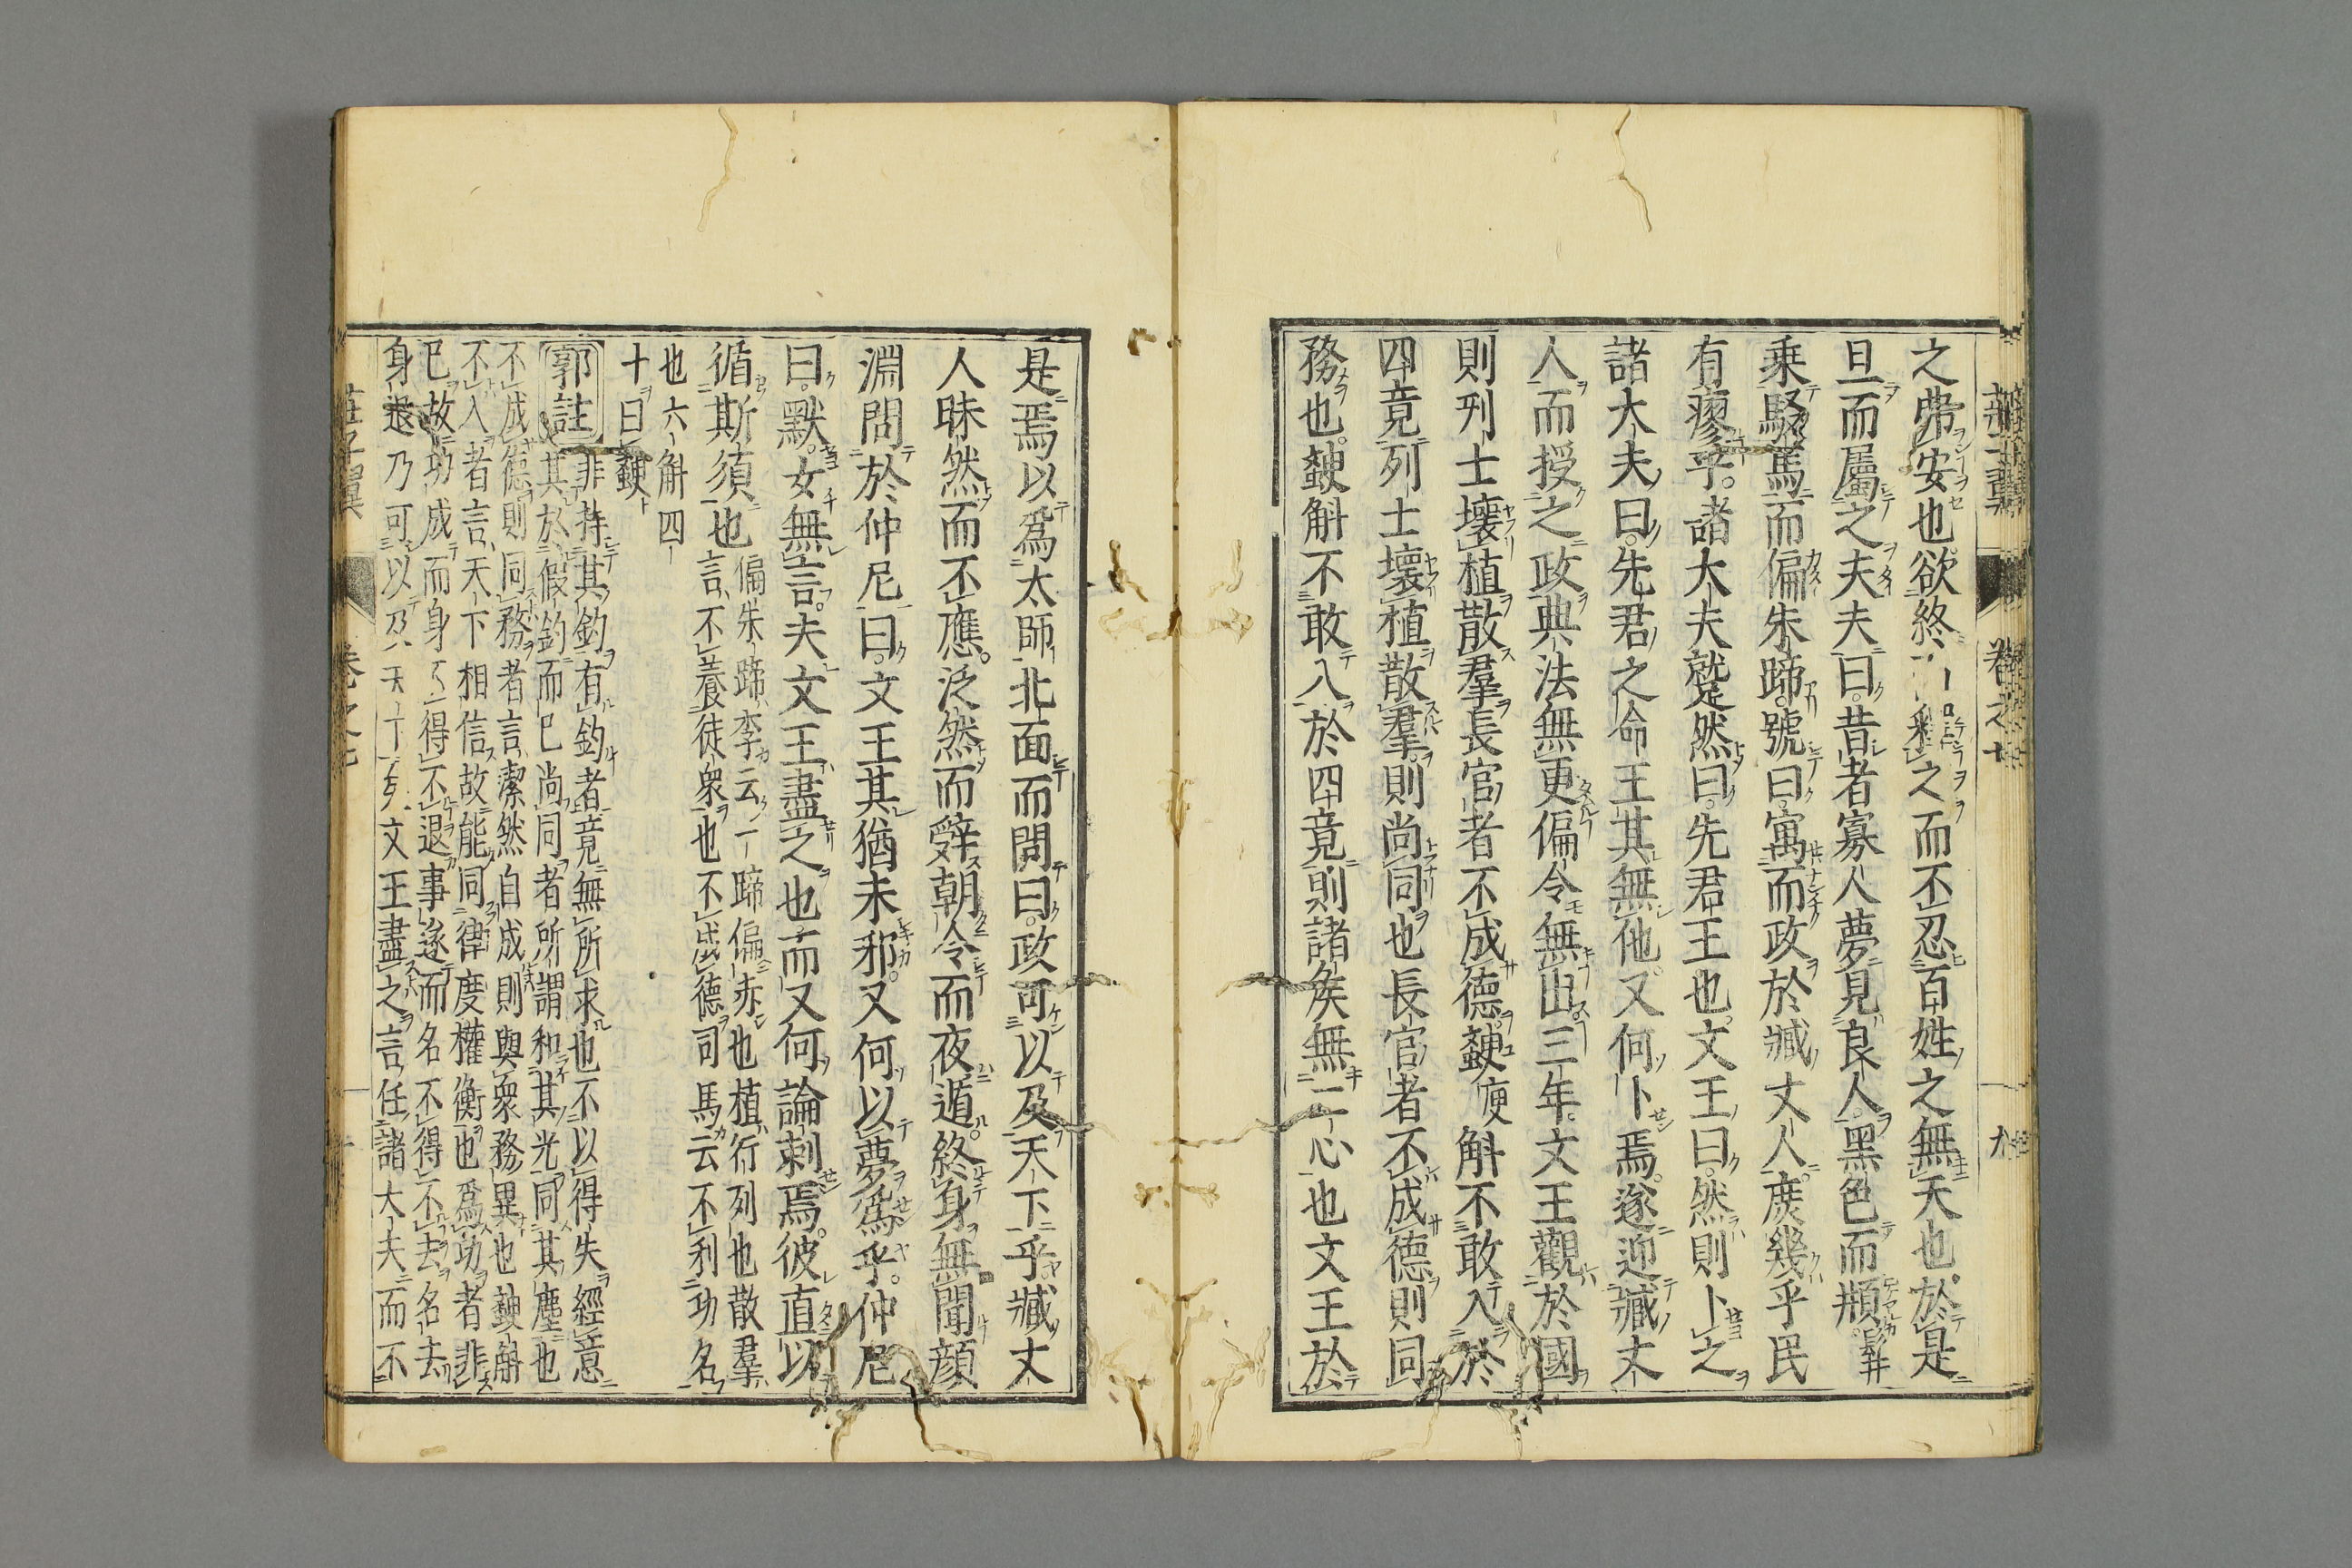 之弗安也欲終而釋之而不忍百姓之無天也於是
旦而屬之夫夫曰昔者寡人夢見良人黑色而𩑺髯
乘駁馬而偏朱蹄號曰寓而政於臧丈人庶幾乎民
有瘳乎諸大夫蹵然曰先君王也文王曰然則卜之
諸大夫曰先君之命王其無他又何卜焉遂迎臧丈
人而授之政典法無更偏令無出三年文王觀於國
則列士壞植散羣長官者不成德䡷斔斛不敢入於
四竟列士壞植散羣則尚同也長官者不成德則同
務也䡷斛不敢入於四竟則諸侯無二心也文王於
是焉以為太師北面而問曰政可以及天下乎臧丈
人昧然而不應泛然而辭朝令而夜遁終身無聞顔
淵問於仲尼曰文王其猶未邪又何以夢為乎仲尼
曰默女無言夫文王盡之也而又何論刺焉彼直以
循斯須也
偏朱蹄李云一蹄偏赤也植行列也散羣
言不養徒衆也不成德司馬云不利功名
也六斛四
十曰䡷
郭註
非持其釣有釣者竟無所求也不以得失經意
其於假釣而已尚同者所謂和其光同其塵也
不成德則同務者言潔然自成則與衆務異也䡷斛
不入者言天下相信故能同律度權衡也為功者非
已故功成而身不得不退事遂而名不得不去名去
身退乃可以及天下也文王盡之言任諸大夫而不
莊子翼 卷之七